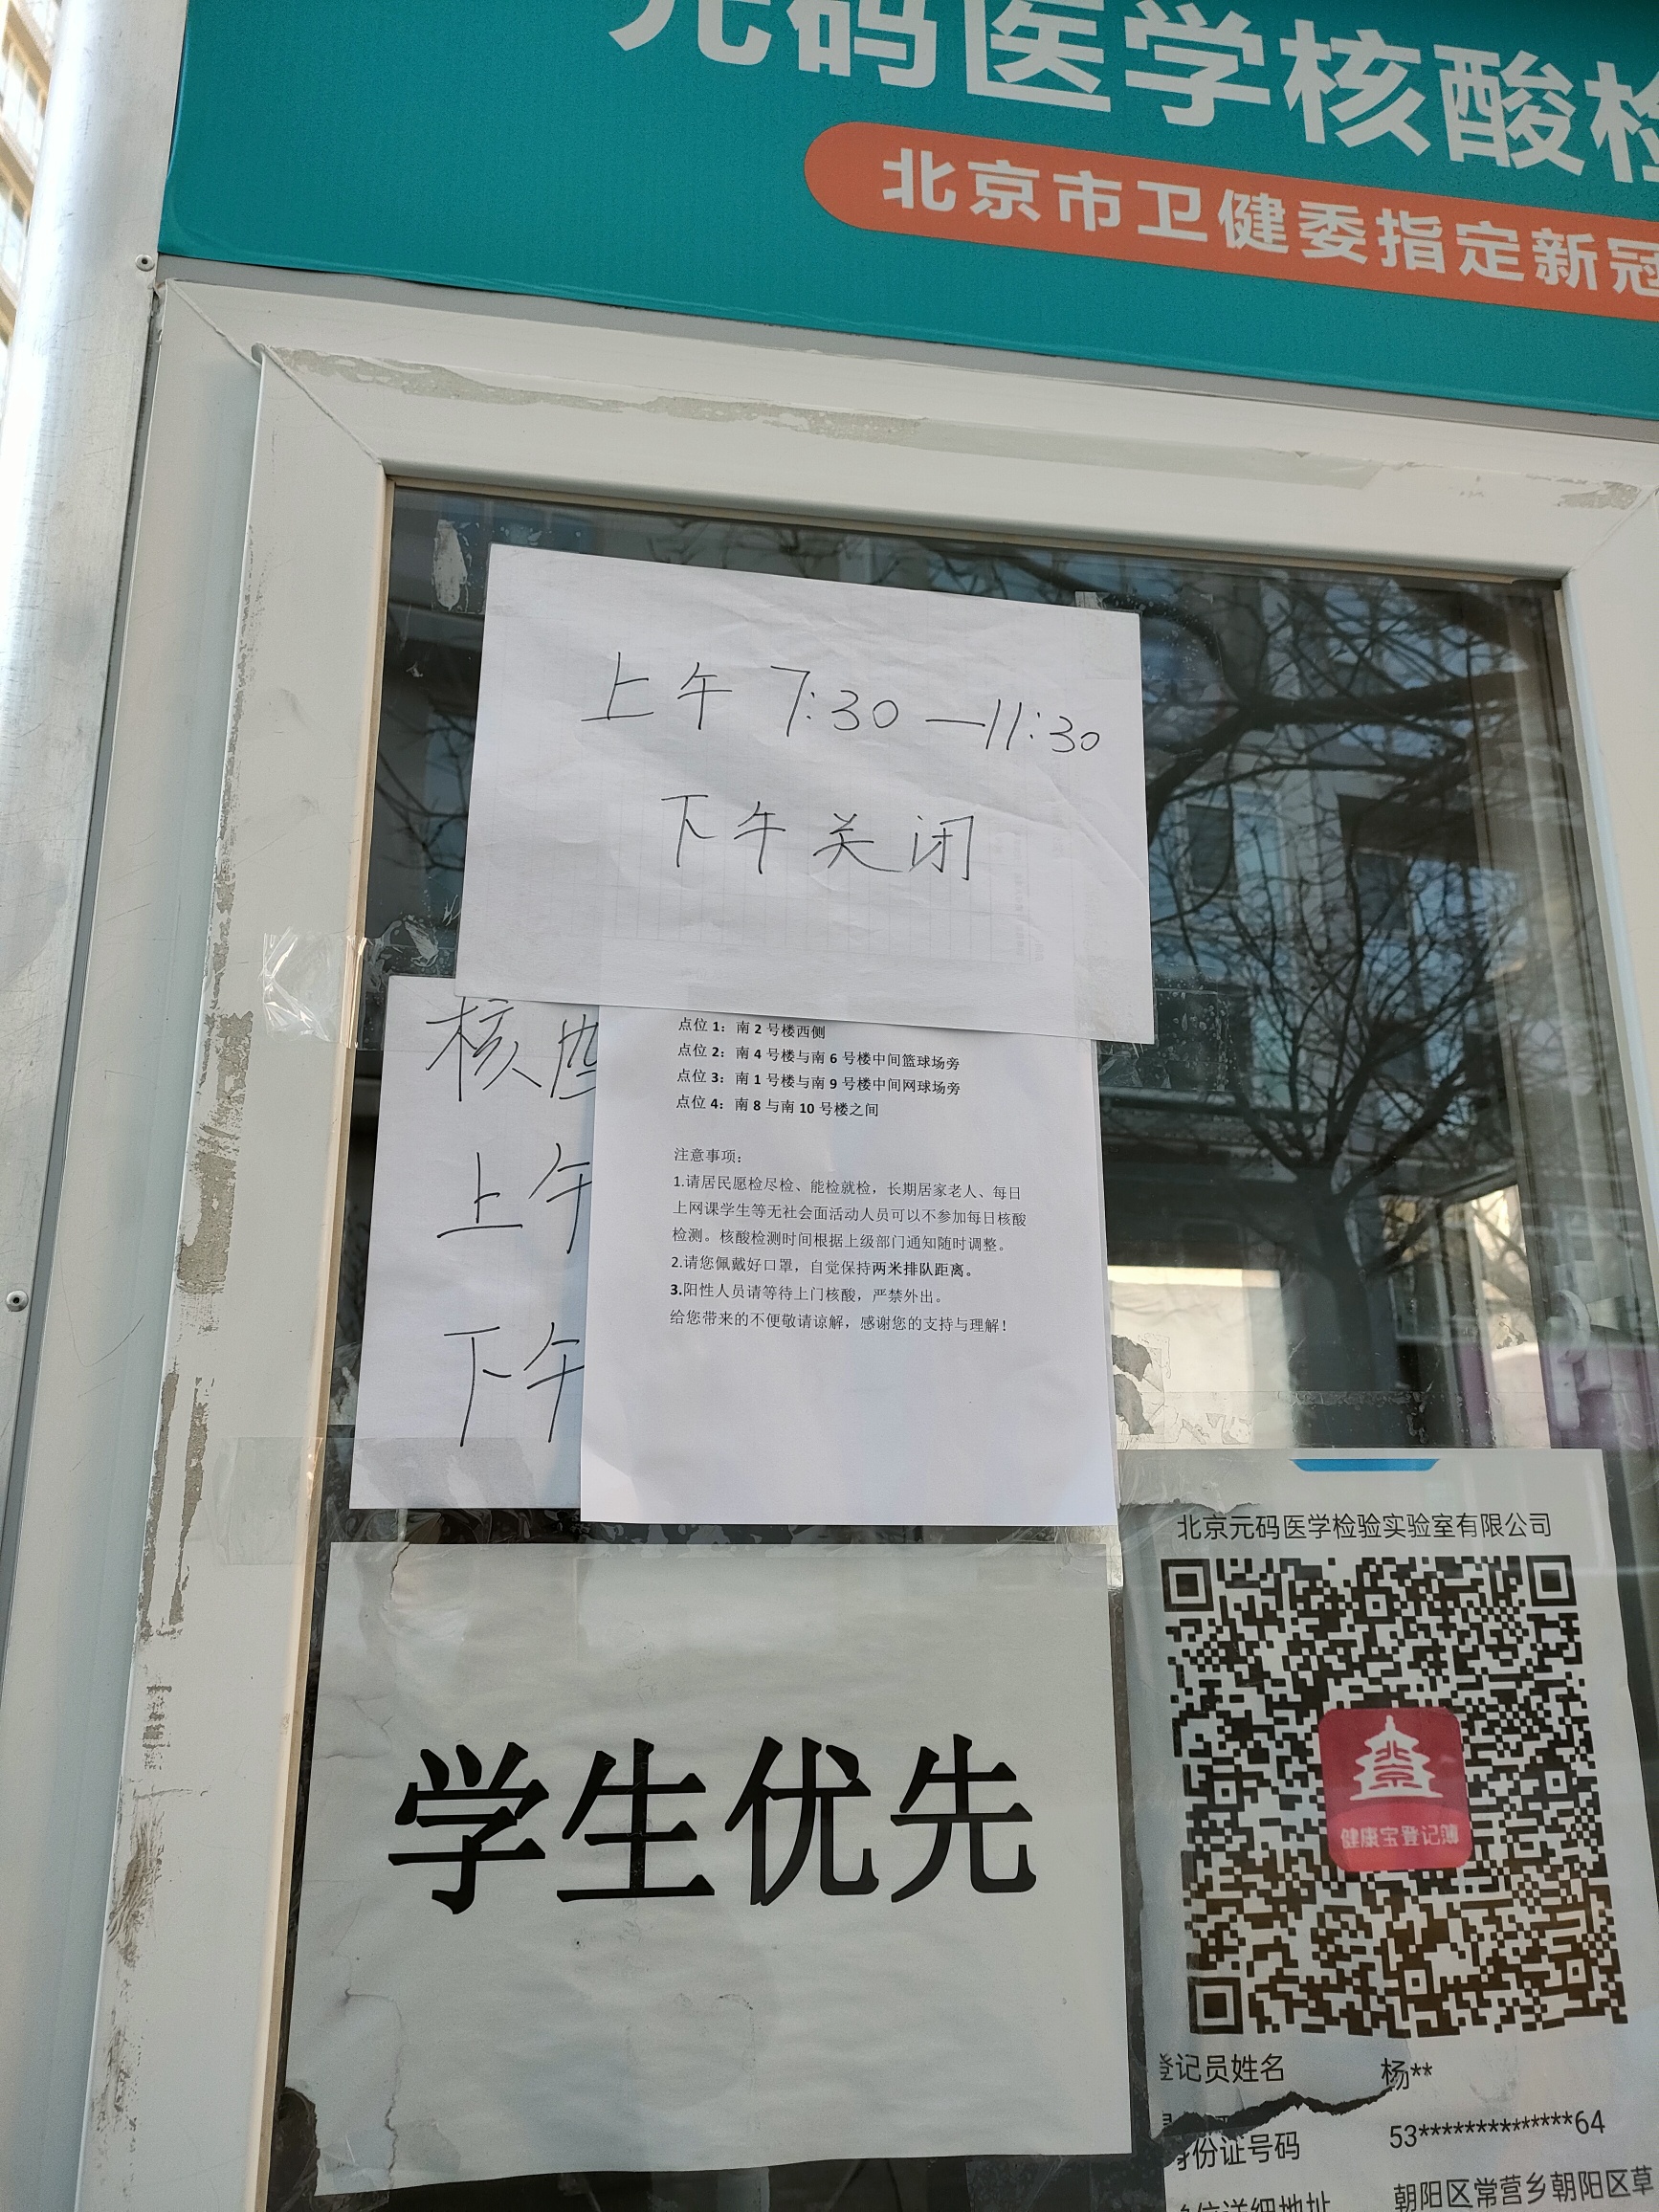 元码医学核酸检
北京市卫健委指定新冠
上午 7:30—11:30
下午关闭
核
上午
下午
点位 1：南 2 号楼西侧
点位 2：南 4 号楼与南 6 号楼中间篮球场旁
点位 3：南 1 号楼与南 9 号楼中间网球场旁
点位 4：南 8 与南 10 号楼之间
注意事项：
1.请居民愿检尽检、能检就检，长期居家老人、每日
上网课学生等无社会面活动人员可以不参加每日核酸
检测。核酸检测时间根据上级部门通知随时调整。
2.请您佩戴好口罩，自觉保持两米排队距离。
3.阳性人员请等待上门核酸，严禁外出。
给您带来的不便敬请谅解，感谢您的支持与理解！
学生优先
北京元码医学检验实验室有限公司
北京
健康宝登记簿
登记员姓名 杨**
身份证号码 53**************64
单位详细地址 朝阳区常营乡朝阳区草